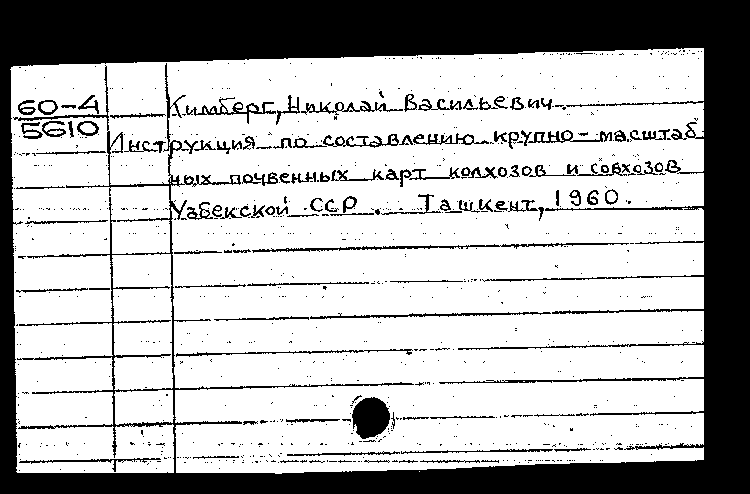 60-4
5610
Кимберг, Николай Васильевич.
Инструкция по составлению крупно-масштаб
ных почвенных карт колхозов и совхозов
Узбекской ССР. Ташкент, 1960.